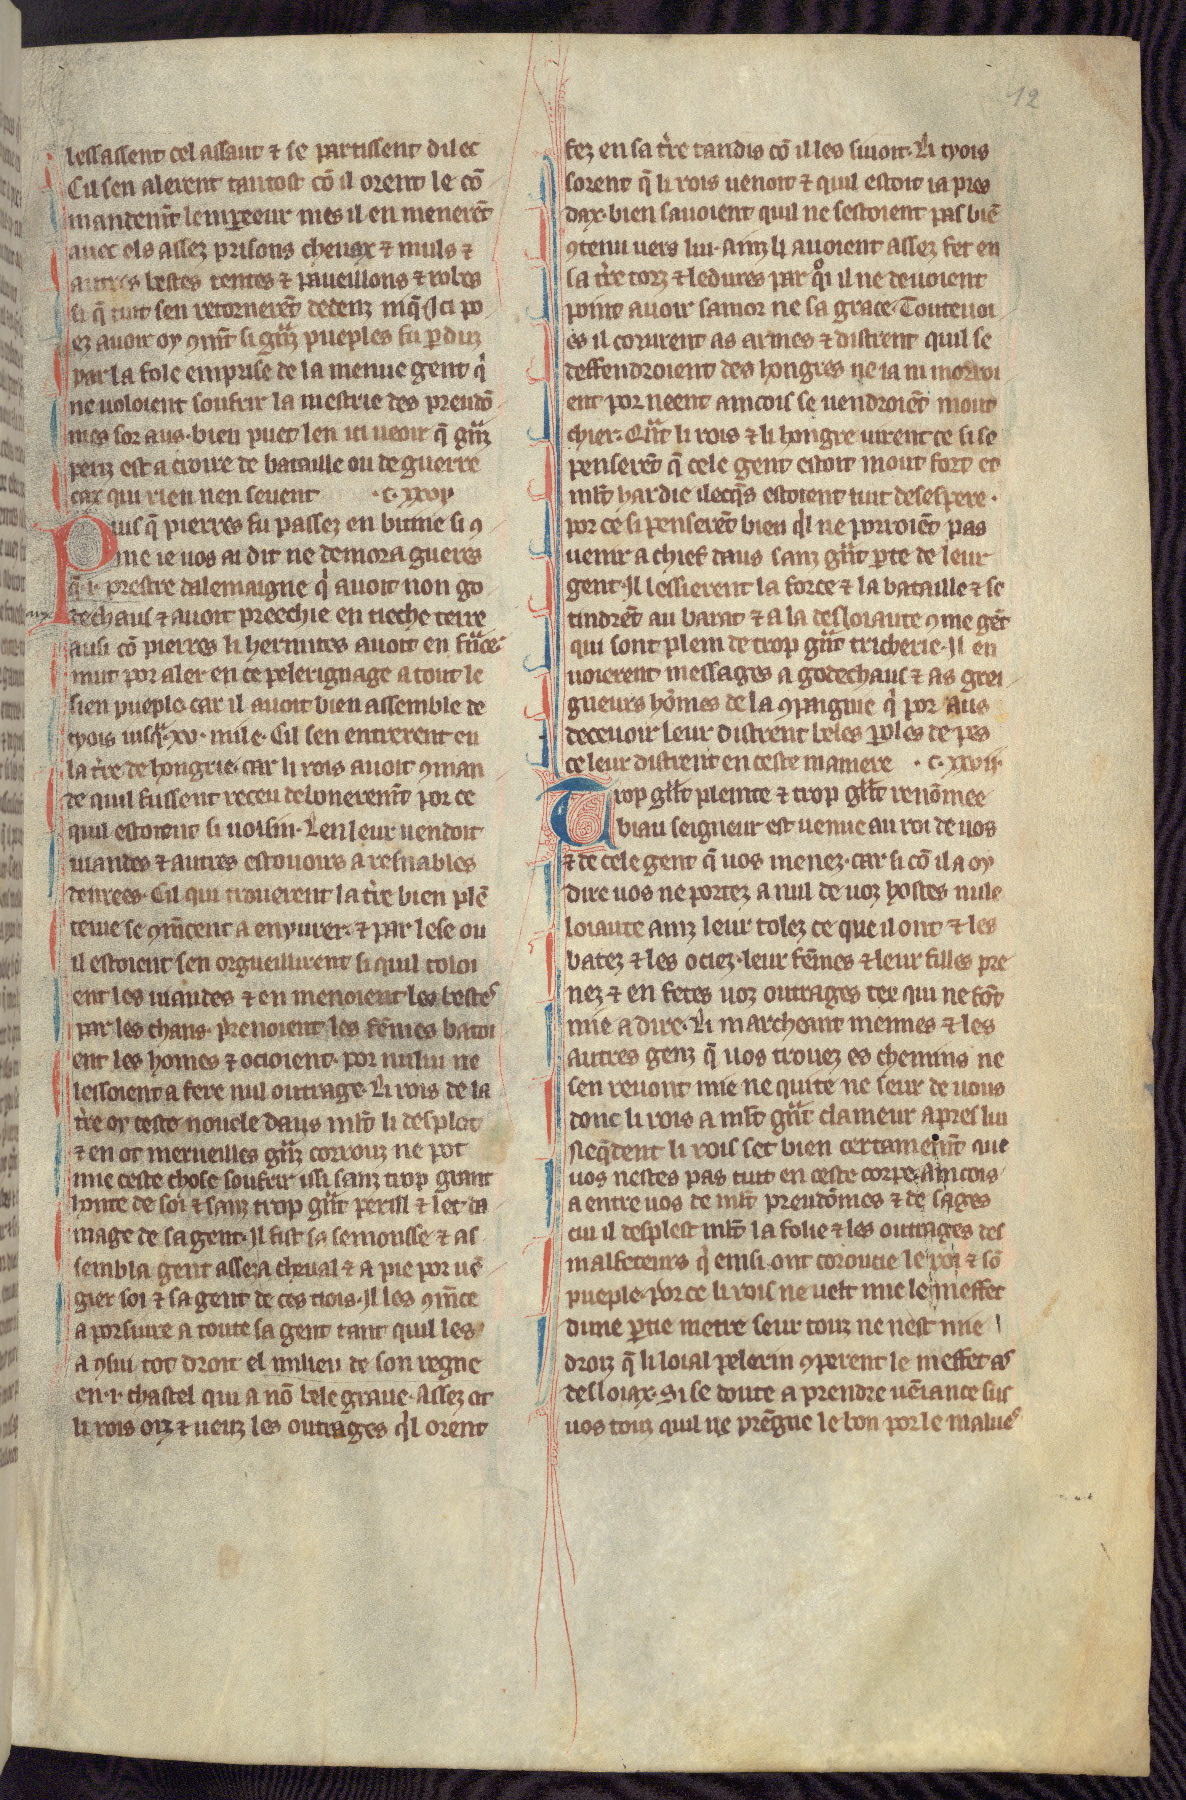 12
lessassent cel assaut ⁊ se partissent dilec
Cil sen alerent tantost cõ il orent le cõ
mandem̃t lempeeur mes il en menerẽt
auec els assez prisons cheuax ⁊ muls ⁊
autres bestes tentes ⁊ paueillons ⁊ robes
si q̃ tuit sen retornerẽt dedenz niq̃ Ici po
ez auoir oy ꝯm̃t si gñz pueples fu ꝑduz
par la fole emprise de la menue gent q̇
ne uoloient soufrir la mestrie des preudõ
mes sor aus. bien puet len ici ueoir q̃ gñz
perilz est a croire de bataille ou de guerre
cax qui rien nen seuent .c. xxvj
Puis q̃ pierres fu passez en bitine si ꝯ
me ie uos ai dit ne demora gueres
q̃ .i. prestre dalemaigne q̇ auoit non go
dechaus ⁊ auoit preechie en tieche terre
ausi cõ pierres li hermites auoit en frãce
mut por aler en ce pelerignage a tout le
sien pueple. car il auoit bien assemble de
tyois iusq̃ .xv. mile. Cil sen entrerent en
la t̃re de hongrie. car li rois auoit ꝯman
de quil fussent receu debonerem̃t por ce
quil estoient si uoisin. Len leur uendoit
uiandes ⁊ autres estouoirs a resnables
denrees. Cil qui trouerent la t̃re bien plẽ
teiue se ꝯm̃cent a enyurer. ⁊ par lese ou
il estoient sen orgueillirent si quil toloi
ent les uiandes ⁊ en menoient les bestes
par les chans. prenoient les fẽmes batoi
ent les homes ⁊ ocioient. por nului ne
lessoient a fere nul outrage. Li rois de la
t̃re oy ceste nouele daus ml̃t li desplot
⁊ en ot merueilles gñz corrouz ne pot
mie ceste chose soufrir issi sanz trop grant
honte de soi ⁊ sanz trop gñt perill ⁊ let da
mage de sa gent. Il fist sa semousse ⁊ as
sembla gent assez a cheual ⁊ a pie por uẽ
gier soi ⁊ sa gent de ces tiois. Il les ꝯm̃ce
a porsuire a toute sa gent tant quil les
a ꝯsiu tot droit el milieu de son regne
en .i. chastel qui a nõ bele graue. Assez ot
li rois oiz ⁊ ueuz les outrages q̇l orent
fez en sa t̃re tandis cõ il les suioit. Li tyois
sorent q̃ li rois uenoit ⁊ quil estoit ia pres
dax. bien sauoient quil ne sestoient pas biẽ
ꝯtenu uers lui. ainz li auoient assez fet en
sa t̃re torz ⁊ ledures par q̊i il ne deuoient
point auoir samor ne sa grace. Touteuoi
es il corurent as armes ⁊ distrent quil se
deffendroient des hongres ne ia ni morroi
ent por neent aincois se uendroiẽt mout
chier. Q̃nt li rois ⁊ li hongre uirent ce si se
penserẽt q̃ cele gent estoit mout fort et
ml̃t hardie ilecq̃s estoient tuit desespere.
por ce si penserẽt bien q̇l ne porroiẽt pas
uenir a chief daus sanz gñt ꝑte de leur
gent. Il lessierent la force ⁊ la bataille ⁊ se
tindrẽt au barat ⁊ a la desloiaute ꝯme gẽt
qui sont plein de trop gñt tricherie. Il en
uoierent messages a godechaus ⁊ as grei
gneurs hõmes de la ꝯpaignie q̇ por aus
deceuoir leur distrent beles ꝑoles de pes
ce leur distrent en ceste maniere .c. xxvij.
Trop gñt pleinte ⁊ trop gñt renõmee
biau seigneur est uenue au roi de uos
⁊ de cele gent q̃ uos menez. car si cõ il a oy
dire uos ne portez a nul de uoz hostes nule
loiaute ainz leur tolez ce que il ont ⁊ les
batez ⁊ les ociez. leur fẽmes ⁊ leur filles pre
nez ⁊ en fetes uoz outrages tex qui ne fõt
mie a dire. Li marcheant meimes ⁊ les
autres genz q̃ uos trouez es chemins ne
sen reuont mie ne quite ne seur de uous
donc li rois a ml̃t gñt clameur apres lui
Neq̃dent li rois set bien certainem̃t que
uos nestes pas tuit en ceste corpe. Aincois
a entre uos de ml̃t preudõmes ⁊ de sages
cui il desplest ml̃t la folie ⁊ les outrages des
malfeteurs q̇ einsi ont coroucie le roi ⁊ sõ
pueple. Por ce li rois ne uelt mie le meffet
dune ꝑtie metre seur touz ne nest mie
droiz q̃ li loial pelerin ꝯperent le meffet as
desloiax. Si se doute a prendre uẽiance sus
uos touz quil ne prẽgne le bon por le maluẽs